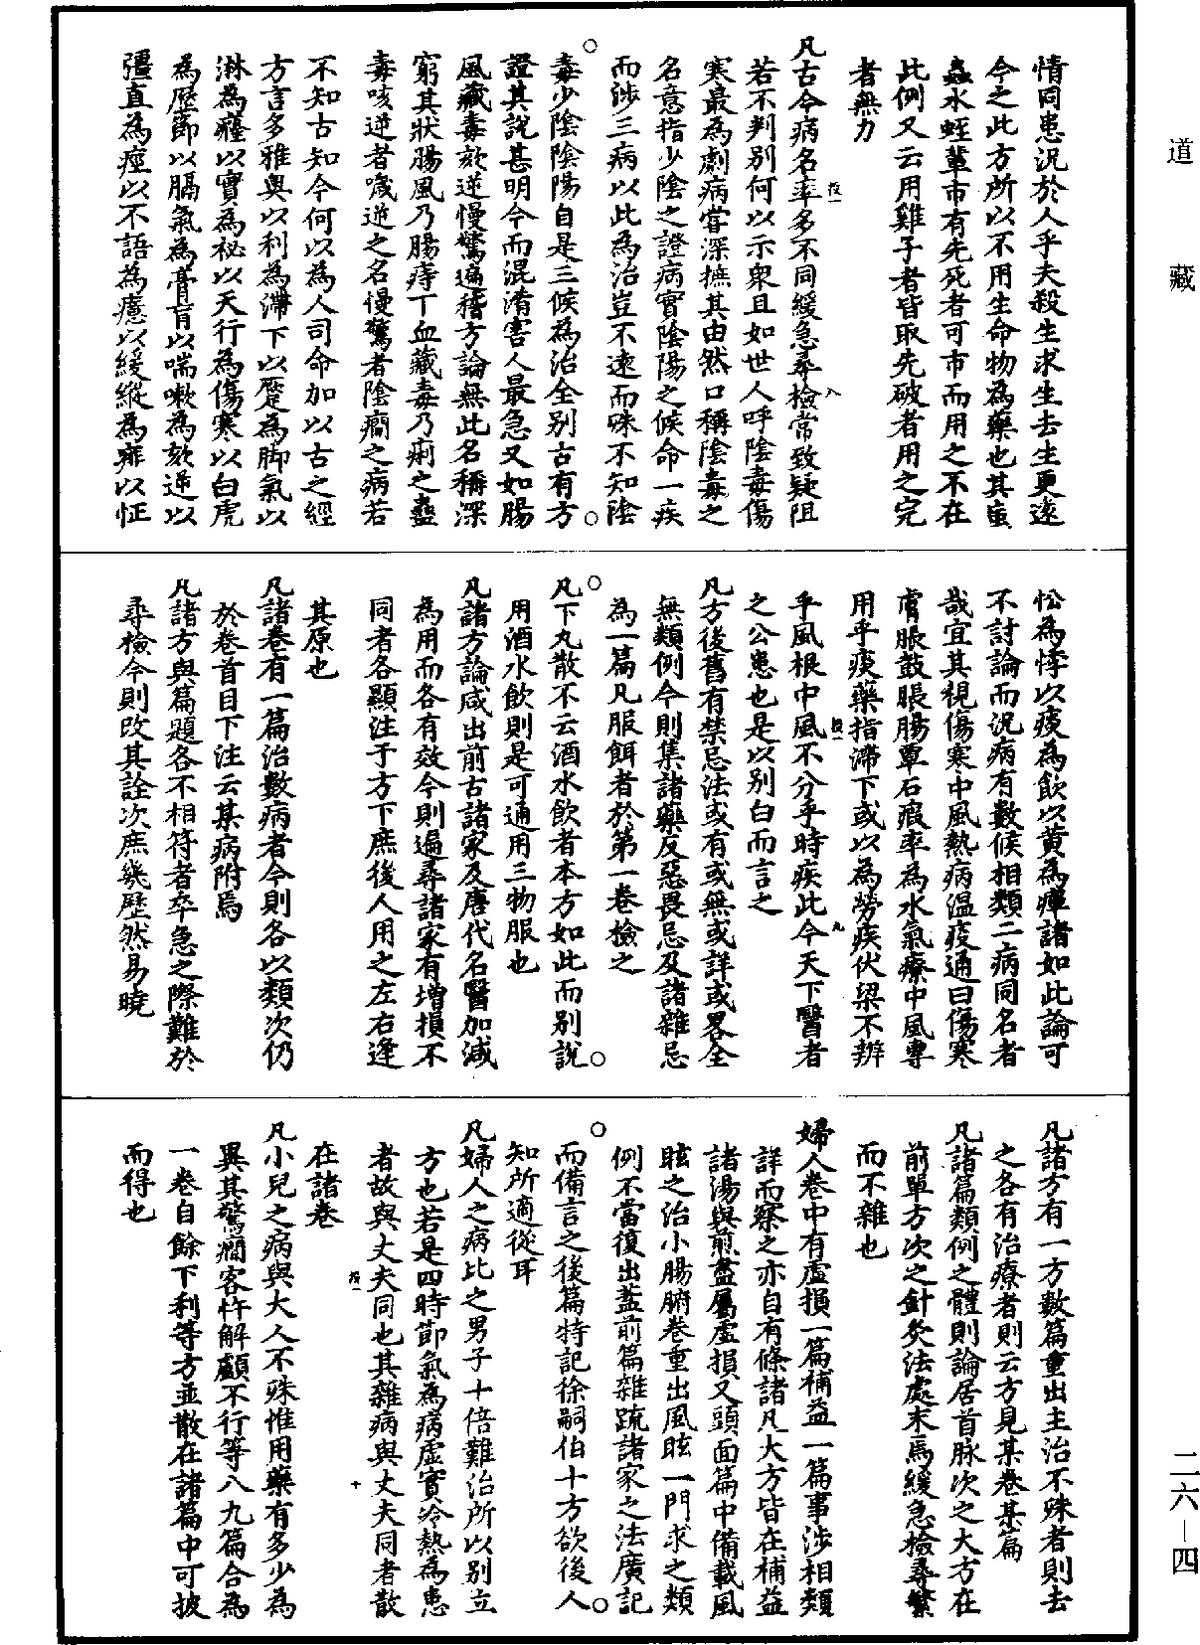 道藏
情同患況於人乎夫殺生求生去生更遠
今之此方所以不用生命物為藥也其䖟
蟲水蛭輩市有先死者可市而用之不在
此例又云用雞子者皆取先破者用之完
者無力
凡古今病名率多不同緩急尋檢常致疑阻
若不判別何以示衆且如世人呼陰毒傷
寒最為劇病嘗深摭其由然口稱陰毒之
名意指少陰之證病實陰陽之候命一疾
而涉三病以此為治豈不遠而殊不知陰
毒少陰陰陽自是三候為治全別古有方
證其說甚明今而混淆害人最急又如腸
風藏毒欬逆慢驚遍稽方論無此名稱深
窮其狀腸風乃腸痔下血藏毒乃痢之蠱
毒咳逆者噦逆之名慢驚者陰癇之病若
不知古知今何以為人司命加以古之經
方言多雅奧以利為滯下以蹷為脚氣以
淋為癃以實為祕以天行為傷寒以白虎
為歷節以膈氣為膏肓以喘嗽為欬逆以
彊直為痙以不語為癔以緩縱為痱以怔
忪為悸以痰為飲以黃為癉諸如此論可
不討論而況病有數候相類二病同名者
哉宜其視傷寒中風熱病溫疫通曰傷寒
膚脹鼓脹腸覃石瘕率為水氣療中風專
用乎痰藥指滯下或以為勞疾伏梁不辨
乎風根中風不分乎時疾此今天下醫者
之公患也是以別白而言之
凡方後舊有禁忌法或有或無或詳或畧全
無類例今則集諸藥反惡畏忌及諸雜忌
為一篇凡服餌者於第一卷檢之
凡下丸散不云酒水飲者本方如此而別說
用酒水飲則是可通用三物服也
凡諸方論咸出前古諸家及唐代名醫加減
為用而各有效今則遍尋諸家有增損不
同者各顯注于方下庶後人用之左右逢
其原也
凡諸卷有一篇治數病者今則各以類次仍
於卷首目下注云某病附焉
凡諸方與篇題各不相符者卒急之際難於
尋檢今則改其詮次庶幾歷然易曉
凡諸方有一方數篇重出主治不殊者則去
之各有治療者則云方見某卷某篇
凡諸篇類例之體則論居首脉次之大方在
前單方次之針灸法處末焉緩急檢尋繁
而不雜也
婦人卷中有虛損一篇補益一篇事涉相類
詳而察之亦自有條諸凡大方皆在補益
諸湯與煎盡屬虛損又頭面篇中備載風
眩之治小腸腑卷重出風眩一門求之類
例不當復出蓋前篇雜疏諸家之法廣記
而備言之後篇特記徐嗣伯十方欲後人
知所適從耳
凡婦人之病比之男子十倍難治所以別立
方也若是四時節氣為病虛實冷熱為患
者故與丈夫同也其雜病與丈夫同者散
在諸卷
凡小兒之病與大人不殊惟用藥有多少為
異其驚癇客忤解顱不行等八九篇合為
一卷自餘下利等方並散在諸篇中可披
而得也
二六—四